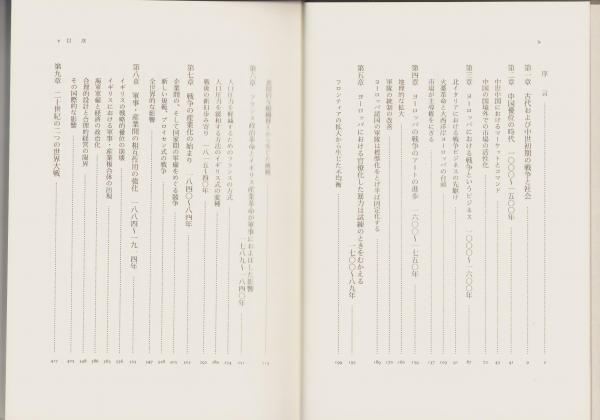 序言
第一章 古代および中世初期の戦争と社会
第二章 中国優位の時代 一〇〇〇〜一五〇〇年
中世中国におけるマーケットとコマンド
中国の国境外での市場の活性化
第三章 ヨーロッパにおける戦争というビジネス
一〇〇〇〜一六〇〇年
北イタリアにおける戦争ビジネスの先駆け
火薬革命と大西洋ヨーロッパの台頭
市場が主導権をにぎる
第四章 ヨーロッパの戦争のアートの進歩 一六〇〇〜一七五〇年
地理的な拡大
軍隊の統制の改善
ヨーロッパ諸国の軍隊は標準化をとげ半ば固定化する
第五章 ヨーロッパにおける官僚化した暴力は試練のときをむかえる
一七〇〇〜八九年
フロンティアの拡大から生じた不均衡
目次
第六章 フランス政治革命とイギリス産業革命が軍事におよぼした影響
一七八九〜一八四〇年
人口圧力を軽減するためのフランスの方式
人口圧力を緩和する方法のイギリス式の変種
戦後の新旧歩み寄り 一八一五〜四〇年
第七章 戦争の産業化の始まり 一八四〇〜八四年
企業間の、そして国家間の軍備をめぐる競争
新しい規範、プロイセン式の戦争
全世界的な影響
第八章 軍事・産業間の相互作用の強化 一八八四〜一九一四年
イギリスの戦略的優位の崩壊
イギリスにおける軍事・産業複合体の出現
海軍軍備と経済の政治化
合理的設計と合理的経営の限界
その国際的な影響
第九章 二十世紀の二つの世界大戦